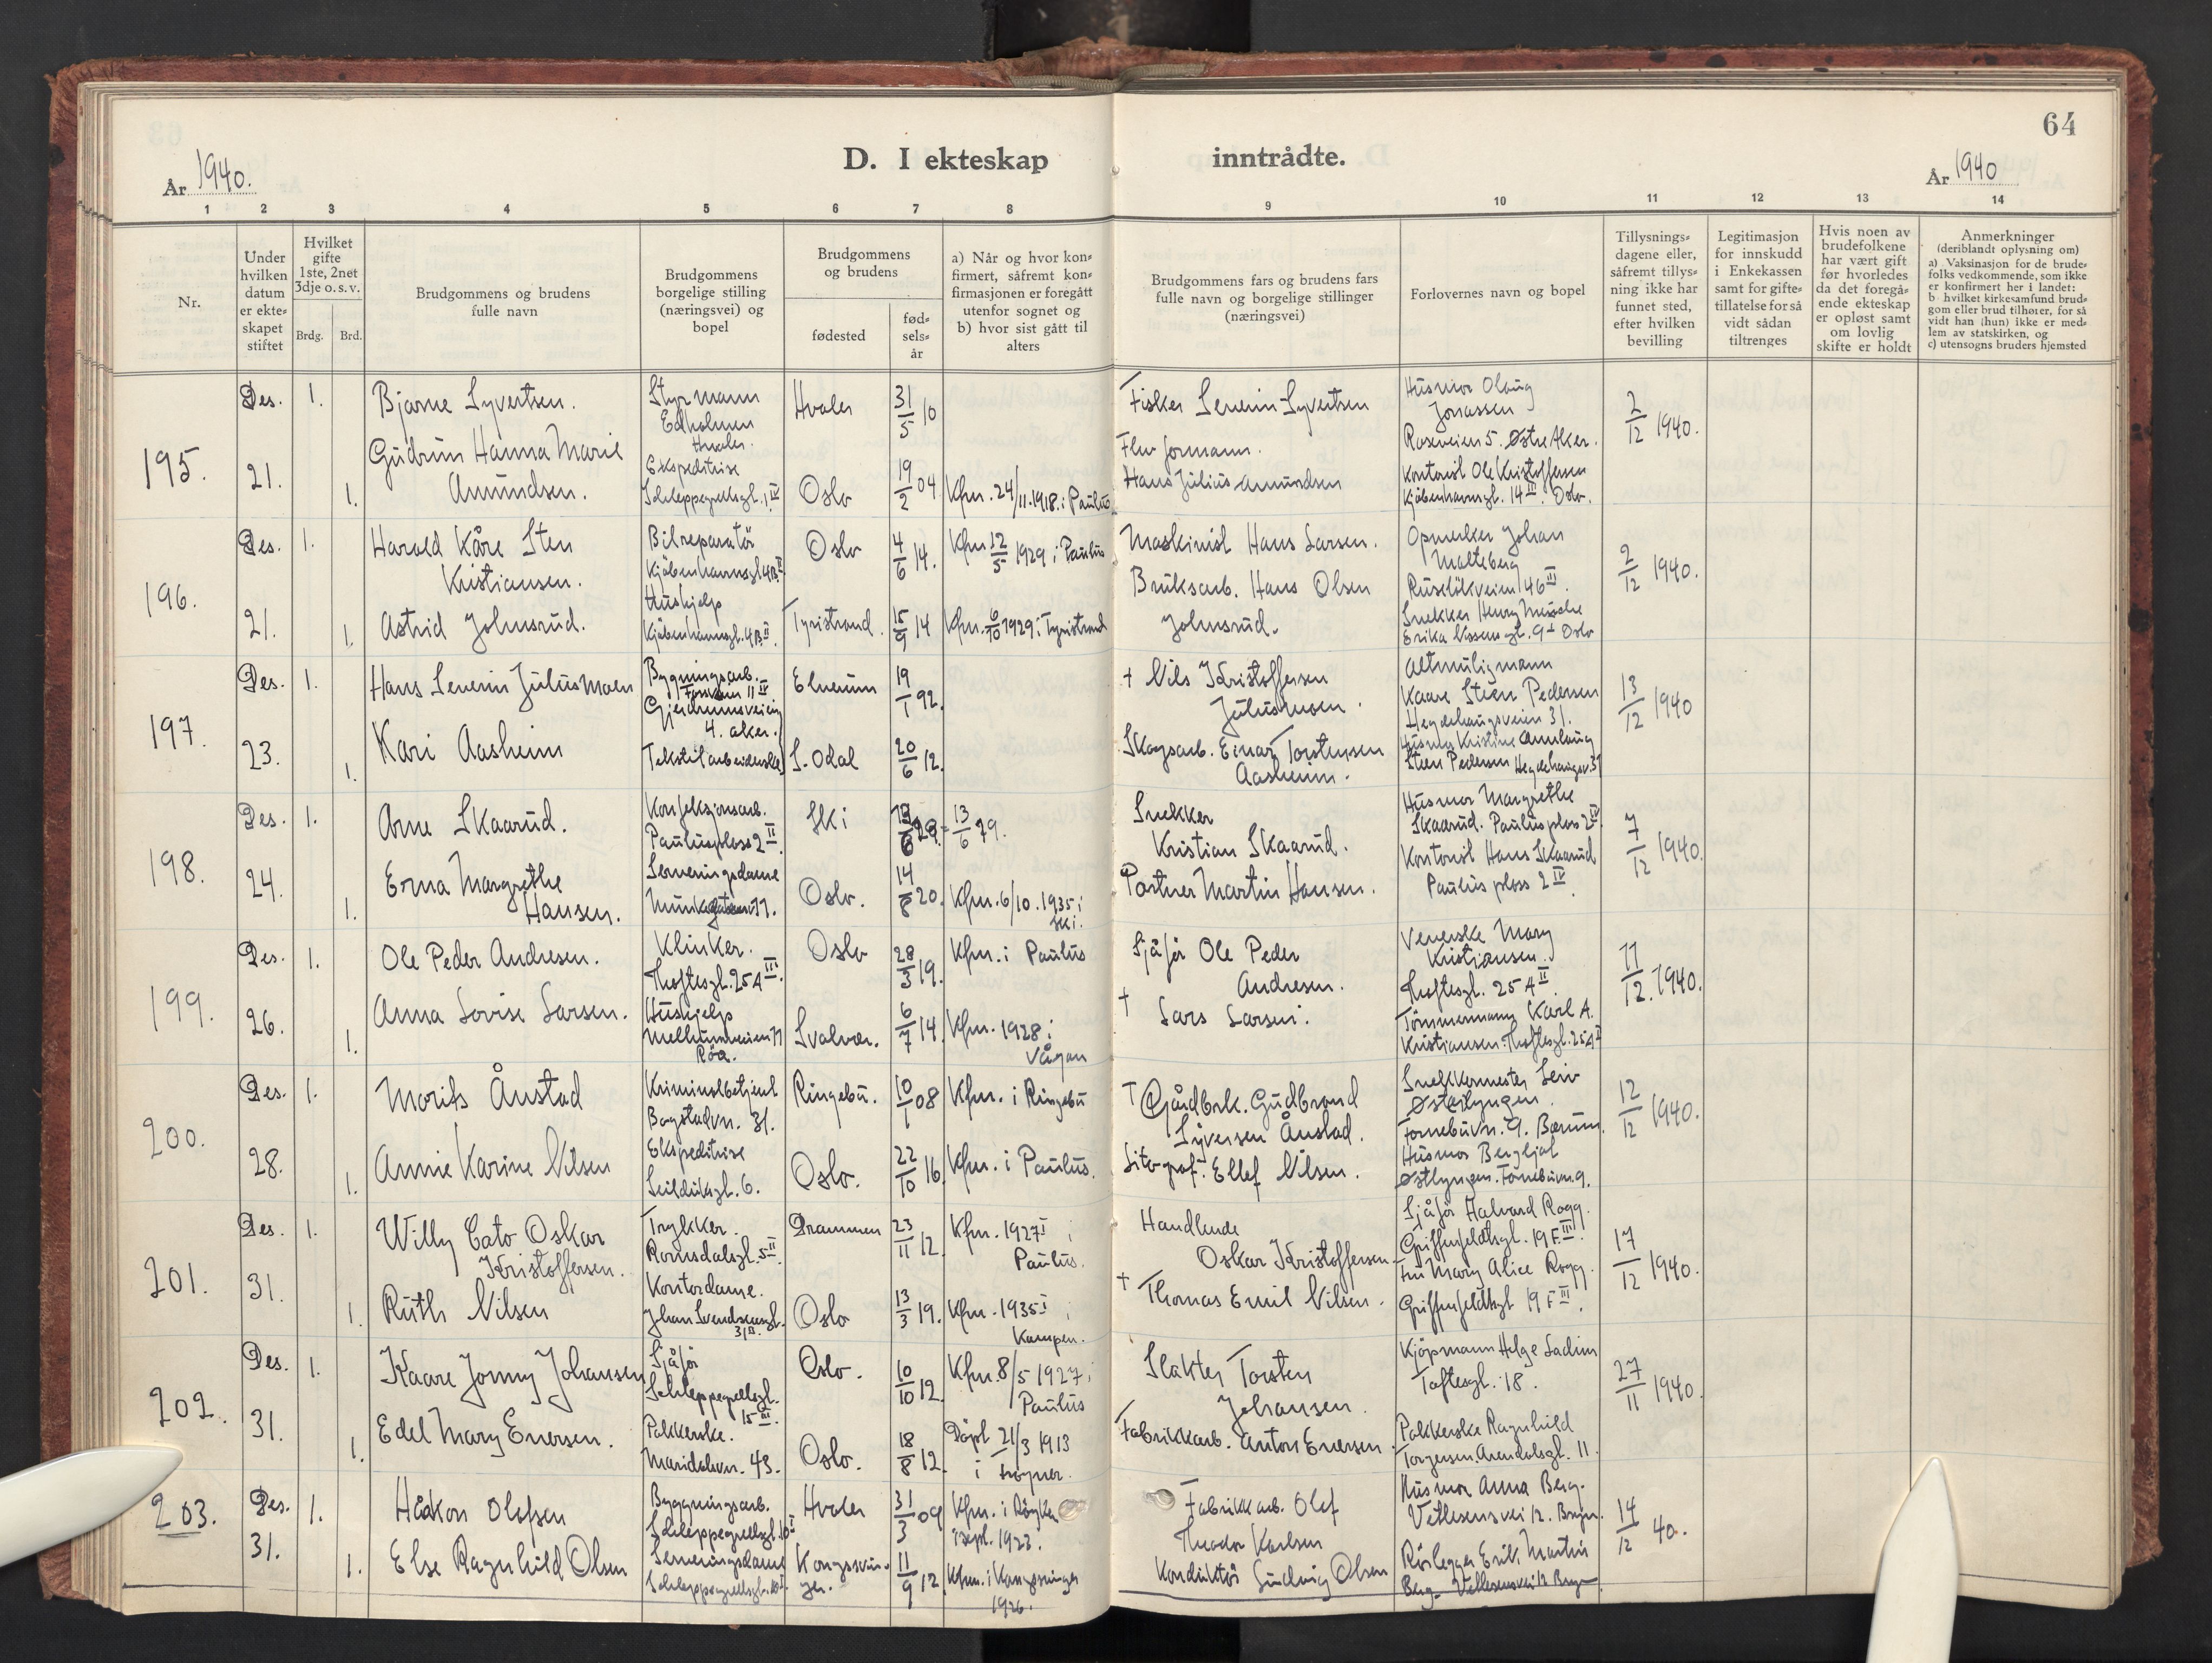 64
D. I ekteskap inntrådte.
År 1940.
År 1940
1 2 3 4 5 6 7 8 9 10 11 12 13 14
Nr.
Under
hvilken
datum
er ekte-
skapet
stiftet
Hvilket
gifte
1ste, 2net
3dje o. s. v.
Brdg. Brd.
Brudgommens og brudens
fulle navn
Brudgommens
borgelige stilling
(næringsvei) og
bopel
Brudgommens
og brudens
fødested
fød-
sels-
år
a) Når og hvor kon-
firmert, såfremt kon-
firmasjonen er foregått
utenfor sognet og
b) hvor sist gått til
alters
Brudgommens fars og brudens fars
fulle navn og borgelige stillinger
(næringsvei)
Forlovernes navn og bopel
Tillysnings-
dagene eller,
såfremt tillys-
ning ikke har
funnet sted,
efter hvilken
bevilling
Legitimasjon
for innskudd
i Enkekassen
samt for gifte-
tillatelse for så
vidt sådan
tiltrenges
Hvis noen av
brudefolkene
har vært gift
før hvorledes
da det foregå-
ende ekteskap
er opløst samt
om lovlig
skifte er holdt
Anmerkninger
(deriblandt oplysning om)
a) Vaksinasjon for de brude-
folks vedkommende, som ikke
er konfirmert her i landet:
b hvilket kirkesamfund brud-
gom eller brud tilhører, for så
vidt han (hun) ikke er med-
lem av statskirken, og
c) utensogns bruders hjemsted
195.
Des. 21.
1.
1.
Bjarne Syvertsen.
Gudrun Hanna Marie
Amundsen.
Styrmann
Edholmen
Hvaler.
Ekspeditrise
Schleppegrellsgt. 1 IV
Hvaler
Oslo
31/5 10
19/2 04
Kfm. 24/11.1918 i Paulus
Fisker Severin Syvertsen
Hans Julius Amundsen
Husmor Olaug
Jonassen
Roseveien 5. Østre Aker.
Kontorist Ole Kristoffersen
Kjøbenhavnsgt. 14 III. Oslo.
2/12 1940.
196.
Des. 21.
1.
1.
Harald Kåre Sten
Kristiansen.
Astrid Johnsrud.
Bilreparatør
Kjøbenhavnsgt. 4B. II
Hushjelp
Kjøbenhavnsgt. 4B. II.
Oslo
Tyristrand.
4/6 14.
15/9 14
Kfm 12/5 1929 i Paulus
Kfm. 6/10 1929 i Tyristrand
Maskinist Hans Larsen.
Bruksarb. Hans Olsen
Johnsrud.
Opmerker Johan
Malteberg
Ruseløkveien 146 III
Snekker Henry
Erika Nissens gt. 9 Oslo
2/12 1940.
197.
Des. 23.
1.
1.
Hans Severin Julusmoen
Kari Aasheim
Bygningsarb.
4. Aker.
Tekstilarbeiderske
Elverum
S. Odal
19/1 92.
20/6 12.
† Nils Kristoffersen
Julusmoen.
Skogsarb. Einar Torstensen
Aasheim.
Altmuligmann
Kaare Steen Pedersen
Hegdehaugsveien 31.
Husmor Kristine Annlaug
Steen Pedersen Hegdehaugsv. 31
13/12 1940
198.
Des. 24.
1.
1.
Arne Skaarud.
Erna Margrethe
Hansen.
Konfeksjonsarb.
Paulus plass 2 II
Serveringsdame
Munkegaten 11.
Ski
Oslo.
13/6 19.
14/8 20.
Kfm. 6/10.1935 i
Ski.
Snekker
Kristian Skaarud.
Portner Martin Hansen.
Husmor Margrethe
Skaarud. Paulus plass 2 IV.
Kontorist Hans Skaarud
Paulus plass 2 IV.
7/12 1940.
199.
Des. 26.
1.
1.
Ole Peder Andresen.
Anna Lovise Larsen.
Klinker.
Toftesgt. 25 A III.
Hushjelp
Mellumveien 11
Røa.
Oslo
Svolvær.
28/3 19.
6/7 14.
Kfm. i Paulus
Kfm. 1928 i
Vågan
Sjåfør Ole Peder
Andresen.
† Lars Larsen.
Veverske Mary
Kristiansen.
Toftesgt. 25 A II.
Tømmermann Karl A.
Kristiansen. Toftesgt. 25 A II
11/12. 1940.
200.
Des. 28.
1.
1.
Morits Ånstad
Annie Karine Nilsen
Kriminalbetjent
Bogstadvn. 31.
Ekspeditrise
Seilduksgt. 6.
Ringebu.
Oslo.
10/1 08
22/10 16.
Kfm. i Ringebu
Kfm. i Paulus.
† Gårdbrk. Gudbrand
Syversen Ånstad.
Litograf. Ellef Nilsen.
Snekkermester Leiv
Østlyngen.
Fornebuvn. 9. Bærum.
Husmor Bergljot
Østlyngen. Fornebuvn. 9.
12/12 1940.
201.
Des. 31.
1.
1.
Willy Cato Oskar
Kristoffersen.
Ruth Nilsen
Trykker.
Romsdalsgt. 5 II.
Kontordame.
Johan Svendsensgt.
Drammen
Oslo
23/11 12.
13/3 19.
Kfm. 1927 i
Paulus.
Kfm. 1935 i
Kampen.
Handlende
Oskar Kristoffersen
† Thomas Emil Nilsen.
Sjåfør Halvard Rogg.
Griffenfeldtsgt. 19 F. III.
Fru Mary Alice Rogg.
Griffenfeldtsgt 19 F III.
17/12 1940.
202.
Des. 31.
1.
1.
Kaare Jonny Johansen
Edel Mary Enersen.
Sjåfør
Schleppegrellsgt.
15 III.
Pakkerske.
Maridalsvn. 43.
Oslo.
Oslo.
10/10 12.
18/8 12.
Kfm. 8/5 1927 i
Paulus
Døpt 21/3 1913
i Frogner.
Slakter Torsten
Johansen.
Fabrikkarb. Anton Enersen.
Kjøpmann Helge Ladim
Toftesgt. 18.
Pakkerske Ragnhild
Torgersen. Arendalsgt. 11.
27/11 1940.
203.
Des. 31.
1.
1.
Håkon Olafsen
Else Ragnhild Olsen
Bygningsarb.
Schleppegrellsgt. 10 I
Serveringsdame
Schleppegrellsgt. 10 I.
Hvaler
Kongsvin-
ger.
31/3 09
11/9 12.
Kfm. i Røyken
i sept. 1923.
Kfm. i Kongsvinger
1926.
Fabrikkarb. Olaf
Theodor Karlsen
Konduktør Ludvig Olsen
Husmor Anna Berg.
Vetlesens vei 12. Bryn.
Rørlegger Erik Martin
Berg. Vetlesensvei 12 Bryn
14/12 40.